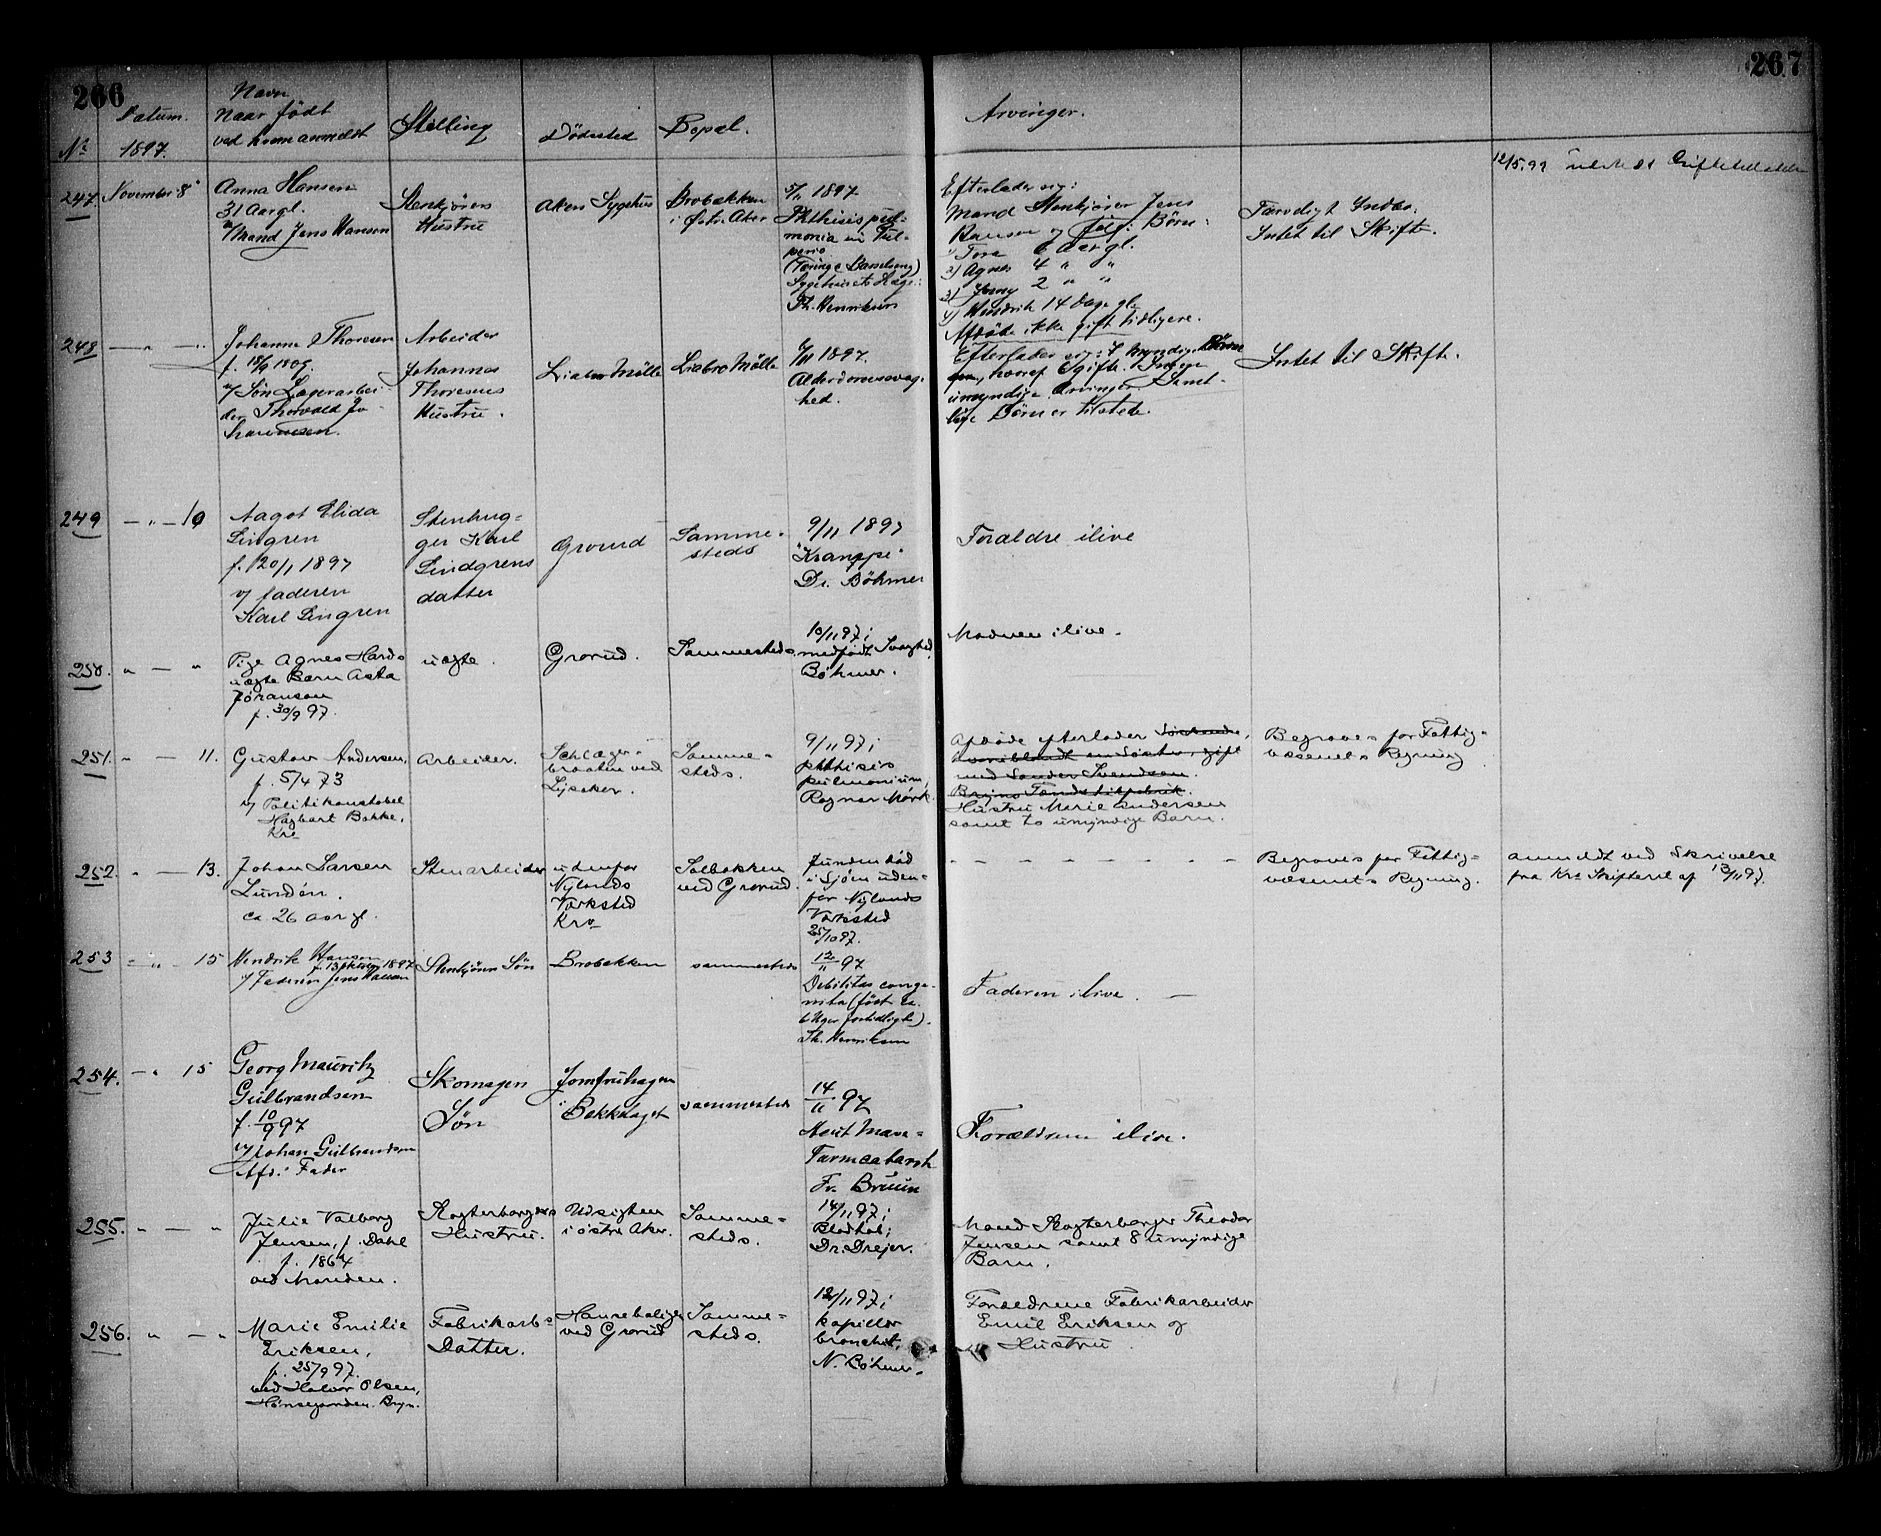 266
267
Navn
Datum. Naar født Stilling Dødssted Bopæl. Arvinger.
No 1897. ved hvem anmeldt
12/5.99
247. November 8
Anna Hansen
31 Aargl.
v/ Mand Jens Hansen
Stenkjørers
Hustru
Akers Sygehus
Brobakken
i østre Aker
5/11 1897
Phthisis
(Tæringe
Sygehusets Læge:
Th. Henriksen
Efterlader sig:
Mand Stenkjører Jens
Hansen og følg: Børn:
1) Tora 6 Aargl.
2) Agnes 4 " "
3) Jenny 2 " "
4) Hendrik 14 Dage gl.
Afdøde ikke gift tidligere.
Færdigt Indbo.
Intet til Skifte.
248 — " — "
Johanne Thoresen
f. 18/9 1809.
v/ Søn Lagerarbei-
der Thorvald Jo-
hannesen.
Arbeider
Johannes
Thoresens
Hustru.
Liabro Mølle
Liabro Mølle
6/11 1897.
Alderdomssvag-
hed.
Efterlader sig: 7 myndige Børn
hvoraf 6 gifte. Ingen
umyndige Arvinger. Samt-
lige Børn er tilstede.
Intet til Skifte.
249 — " — 10
Aagot Elida
Lingren
f. 20/1 1897
v/ faderen
Karl Lingren
Stenhug-
ger Karl
Lindgrens
datter
Grorud
Samme-
steds
9/11 1897
"Krampe"
Dr. Bøhmer
Forældre ilive
250. " — "
Pige Agnes Hards
uægte Barn Asta
Johanson
f. 30/9 97.
uægte.
Grorud.
Sammesteds.
10/11 97;
medfødt Svaghed,
Bøhmer.
Moderen ilive.
251. " — 11.
Gustav Andersen,
f. 5/4 73
v/ Politikonstabel
Hagbart Bakke,
Kra
Arbeider.
Schlæger-
braaten ved
Lysaker.
Samme-
steds.
9/11 97;
phthisis
pulmonium,
Ragnar Mørk.
Afdøde efterlader Søskende,
hvoriblandt en Søster, gift
med Sander Svendsen
Bryns Tændstikfabrik.
Hustru Marie Andersen
samt to umyndige Barn.
Begraves for Fattig-
væsenets Regning
252. " — 13.
Johan Larsen
Lundén.
ca. 26 aar gl.
Stenarbeider
udenfor
Nylands
Værksted
Kra
Solbakken
ved Grorud.
funden død
i Sjøen uden-
for Nylands
Værksted
25/10 97.
— — — — — — —
Begraves for Fattig-
væsenets Regning.
anmeldt ved Skrivelse
fra Kra Skifteret af 12/11 97.
253 — " — 15
Hendrik Hansen
f. 1897
v/ Faderen Jens Hansen
Stenkjørers Søn
Brobakken
sammesteds
12/11 97
Debilitas conge-
nita (født ca.
6 Uger fortidligt).
Th. Henriksen
Faderen ilive. —
254. — " 15
Georg Mauritz
Gulbrandsen
f. 10/9 97
v/ Johan Gulbrandsen
Afd.: Fader
Skomager
Søn
Jomfruhagen
i Bækkelaget
sammesteds
14/11 97
Acut Mave-
Tarmcatarrh
Fr. Bruun
Forældrene ilive.
255. " — "
Julie Valborg
Jensen, f. Dahl
f. 1864
ved Manden.
Slagterborgers
Hustru.
Udsigten
i østre Aker.
Samme-
steds.
14/11 97;
Blodtab;
Dr. Drejer.
Mand Slagterborger Theodor
Jensen samt 8 umyndige
Barn.
256. " — "
Marie Emilie
Eriksen,
f. 25/9 97.
ved Halvor Olsen,
Hønsegaarden Bryn.
Fabrikarb-
Datter.
ved Grorud
Samme-
steds.
12/11 97;
kapillær
bronchit,
N. Bøhmer.
Forældrene Fabrikarbeider
Emil Eriksen og
Hustru.